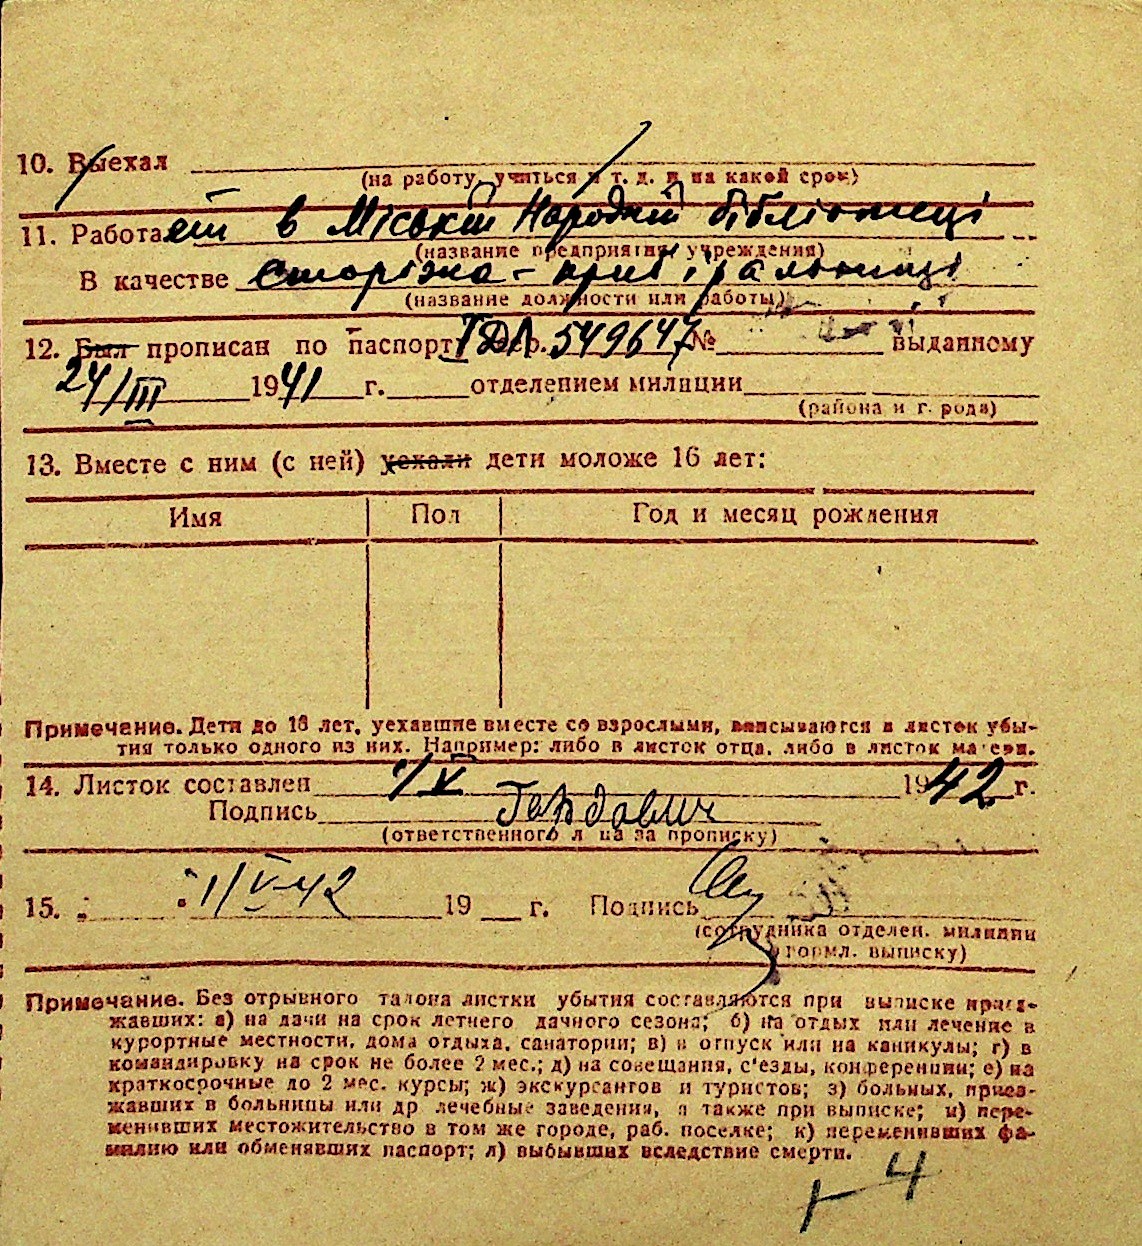 10. Выехал
(на работу, учиться и т. д. и на какой срок)
11. Работает в Міській Народній бібліотеці
(название предприятия, учреждения)
В качестве сторожа-прибіральниці
(название должности или работы)
12. Был прописан по паспорту 549647 № выданному
24/III 1941 г. отделением милиции
(района и г. рода)
13. Вместе с ним (с ней) уехали дети моложе 16 лет:
Имя Пол Год и месяц рождения
Примечание. Дети до 16 лет, уехавшие вместе со взрослыми, вписываются в листок убы-
тия только одного из них. Например: либо в листок отца, либо в листок матери.
14. Листок составлен 1/V 1942 г.
Подпись
(ответственного лица за прописку)
15. 1/V-42 19 г. Подпись
(сотрудника отделен. милиции
формл. выписку)
Примечание. Без отрывного талона листки убытия составляются при выписке приез-
жавших: а) на дачи на срок летнего дачного сезона; б) на отдых или лечение в
курортные местности, дома отдыха, санатории; в) в отпуск или на каникулы; г) в
командировку на срок не более 2 мес.; д) на совещания, с'езды, конференции; е) на
краткосрочные до 2 мес. курсы; ж) экскурсантов и туристов; з) больных, приез-
жавших в больницы или др лечебные заведения, а также при выписке; и) пере-
менивших местожительство в том же городе, раб. поселке; к) переменивших фа-
милию или обменявших паспорт; л) выбывших вследствие смерти.
4